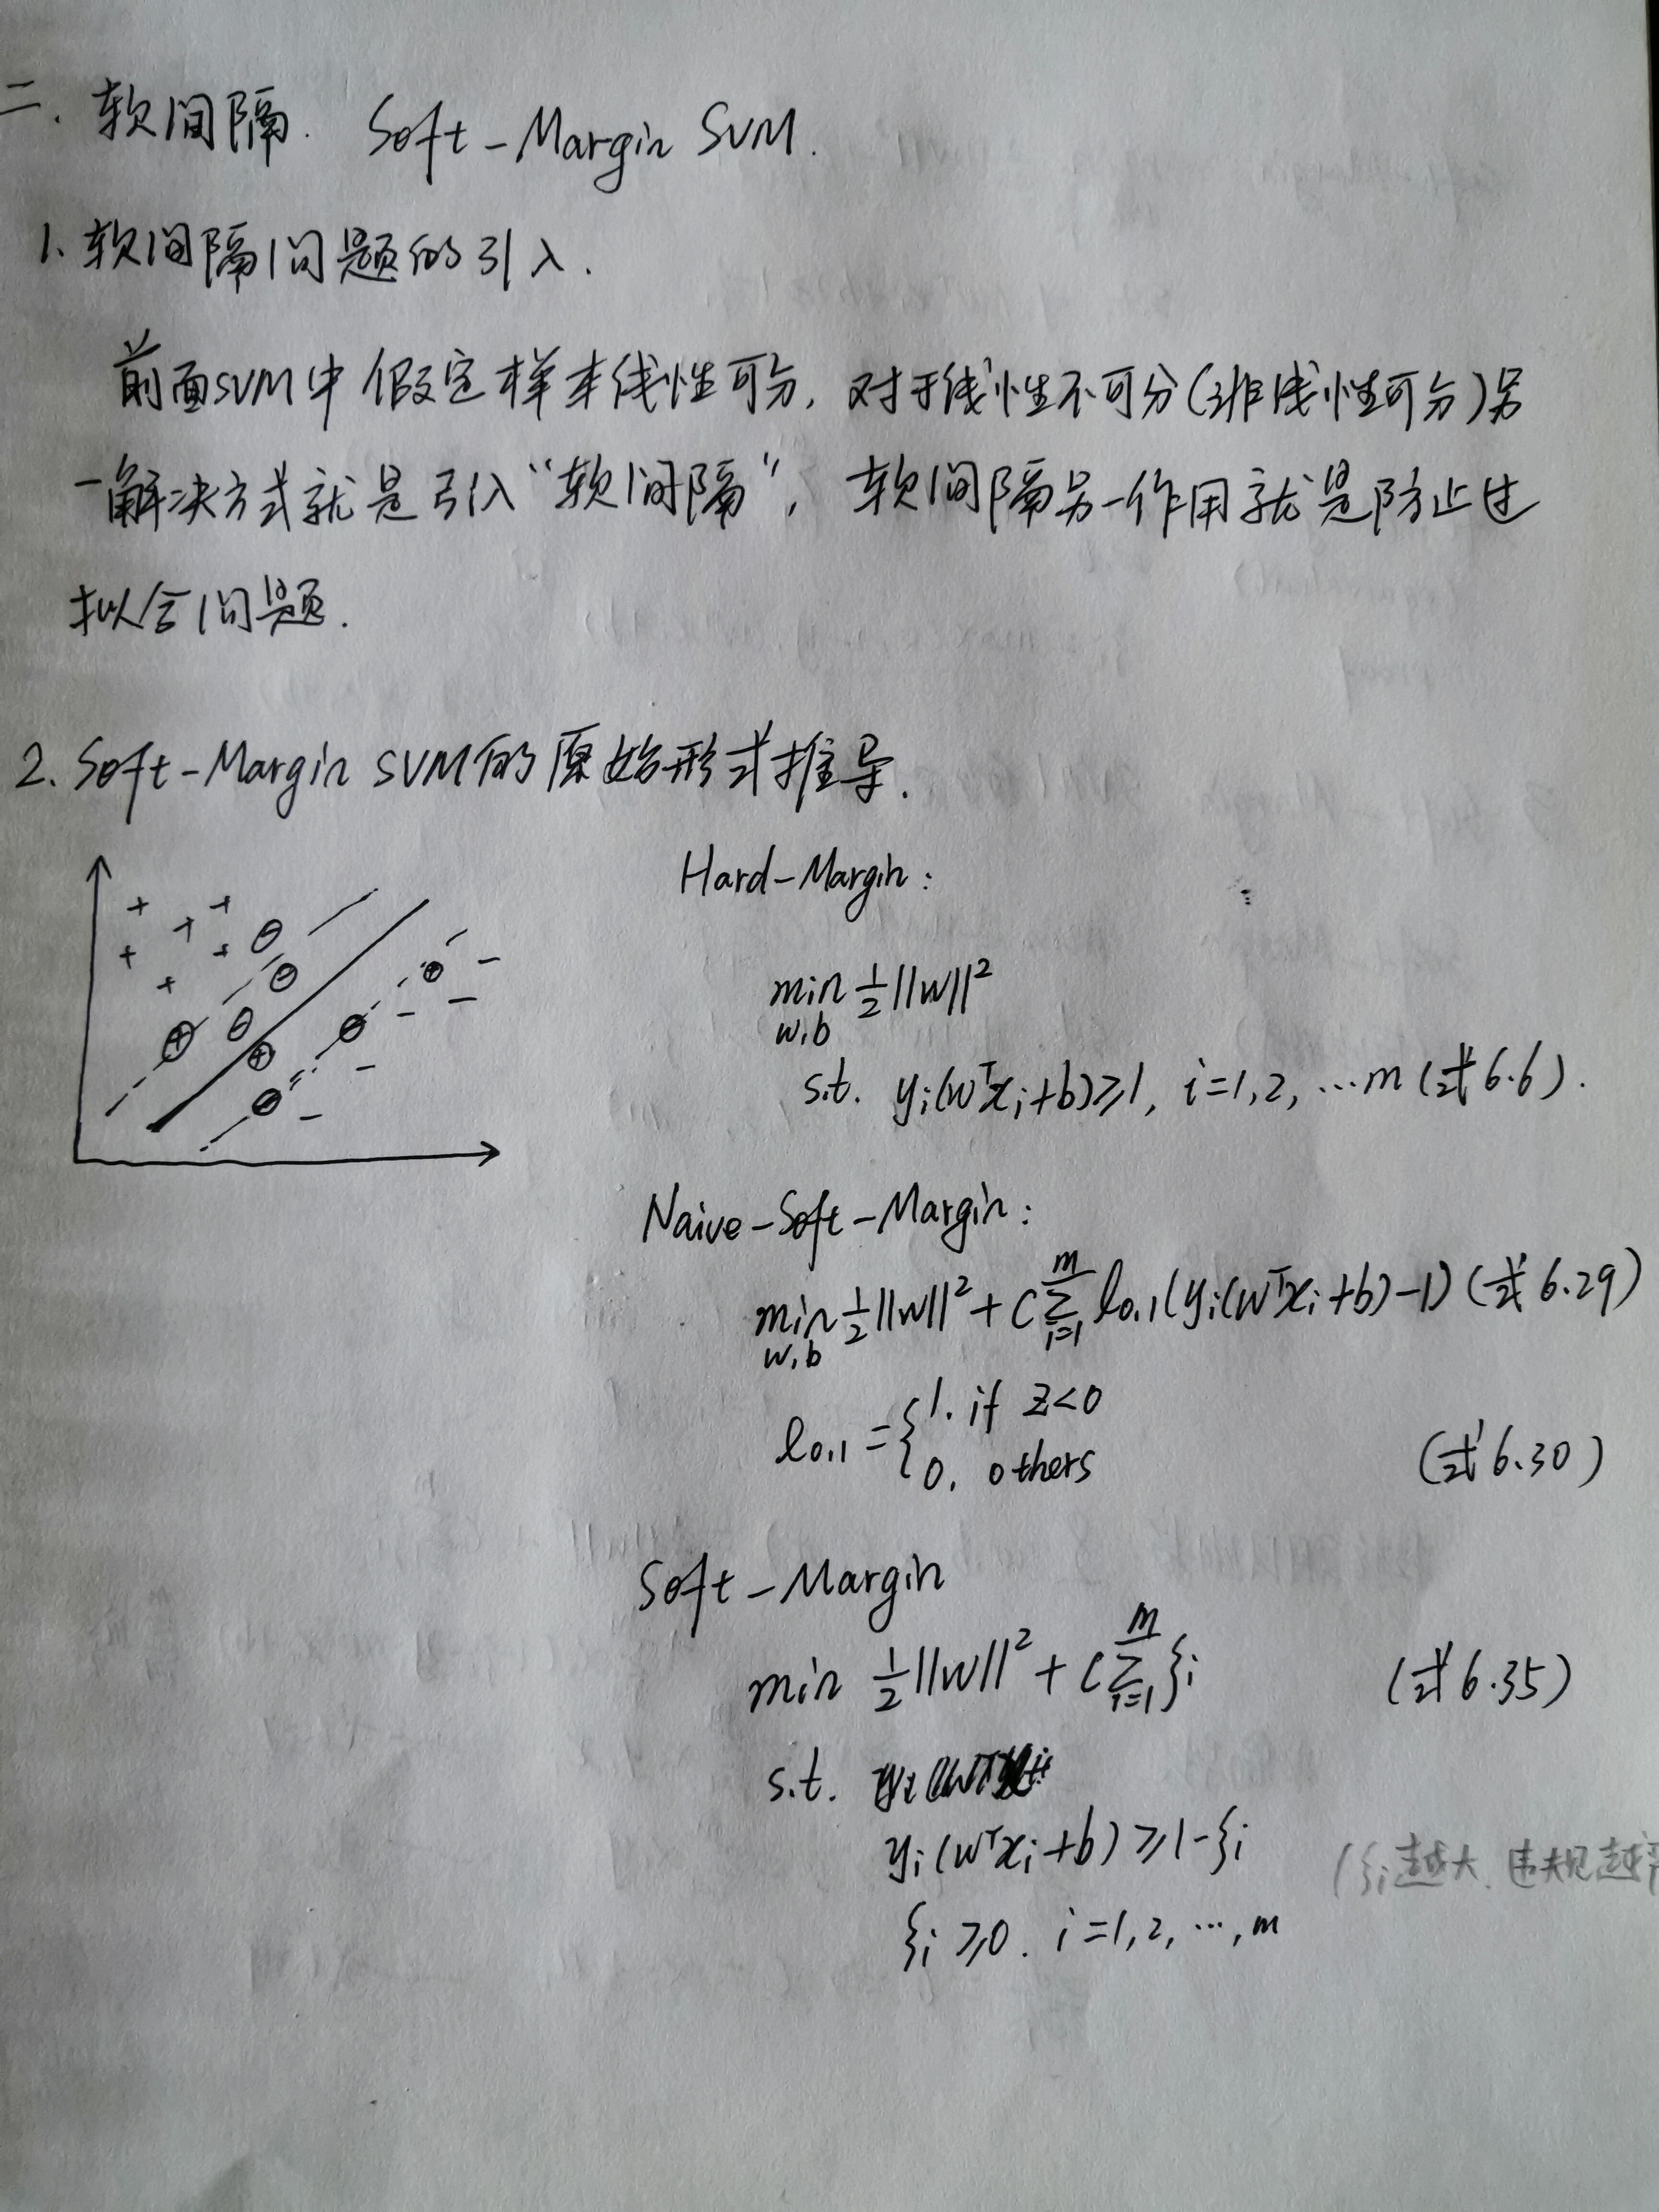 二. 软间隔. Soft-Margin SVM.
1、软间隔问题的引入.
前面SVM中假定样本线性可分, 对于线性不可分(非线性可分)另
一解决方式就是引入“软间隔”, 软间隔另一作用就是防止过
拟合问题.
2. Soft-Margin SVM的原始形式推导.
Hard-Margin:
min 1/2||w||²
w,b
s.t. yᵢ(wᵀxᵢ+b)≥1, i=1,2, …m (式6.6).
Naive-Soft-Margin:
min 1/2||w||² + C Σᵢ₌₁ᵐ ℓ₀,₁(yᵢ(wᵀxᵢ+b)-1) (式6.29)
w,b
ℓ₀,₁ = { 1. if z<0
0, others (式6.30)
Soft-Margin
min 1/2||w||² + C Σᵢ₌₁ᵐ ξᵢ (式6.35)
s.t.
yᵢ(wᵀxᵢ+b) ≥1-ξᵢ (ξᵢ越大, 违规越
ξᵢ≥0. i=1,2, …, m